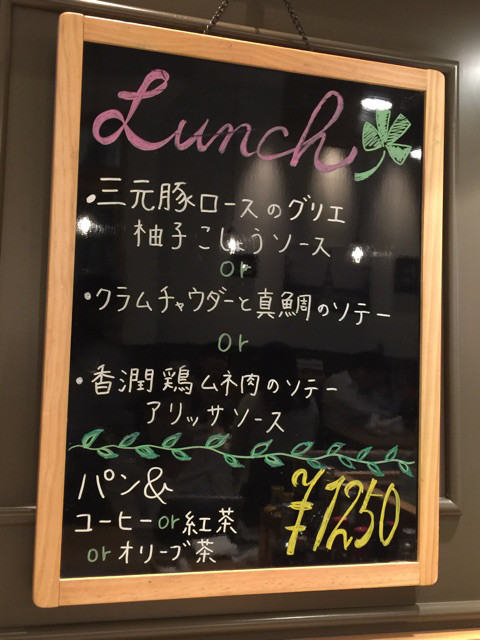 Lunch
・三元豚ロースのグリエ
柚子こしょうソース
or
・クラムチャウダーと真鯛のソテー
or
・香潤鶏ムネ肉のソテー
アリッサソース
パン&
コーヒーor紅茶
orオリーブ茶
¥1250